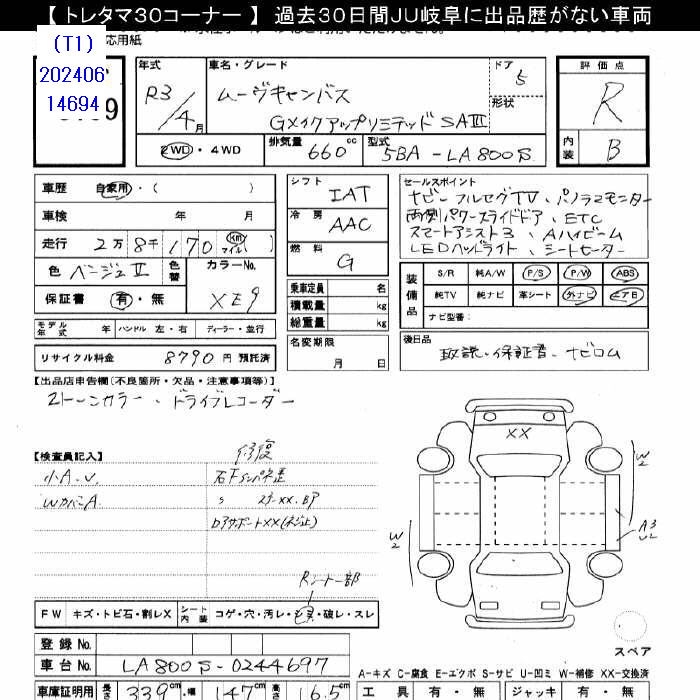 【 トレタマ30コーナー 】 過去30日間JU岐阜に出品歴がない車両
(T1) 応用紙
202406
14694
年式 車名・グレード ドア 5 評価点
R3/4月 ムーヴキャンバス 形状 R
GXメイクアップリミテッド SAIII
2WD・4WD 排気量 660cc 型式 5BA-LA800S 内装 B
車歴 自家用・( ) シフト IAT セールスポイント
ナビ フルセグTV、パノラマモニター
車検 年 月 冷房 AAC 両側パワースライドドア、ETC
スマートアシスト3、Aハイビーム
走行 2万8千170 Km マイル ) 燃料 G LEDヘッドライト、シートヒーター
色 ベージュII 色替 カラーNo. XE9
装備品 S/R 純A/W P/S P/W ABS
保証書 有・無 乗車定員 名
積載量 kg
純TV 純ナビ 革シート 外ナビ エアB
総重量 kg
ナビ型番:
モデル年式 年 ハンドル 左・右 ディーラー・並行
名変期限 月 日
後日品
リサイクル料金 8790 円 預託済
取説・保証書・ナビロム
【出品店申告欄(不良箇所・欠品・注意事項等)】
2トーンカラー、ドライブレコーダー
【検査員記入】 修復
小A.U.
WカバーA
XX
W2
W2
A3
U2
Rシート一部
FW キズ・トビ石・割レX シート内装 コゲ・穴・汚レ・毛・破レ・スレ
登録 No.
車台 No. LA800S-0244697
スペア
A-キズ C-腐食 E-エクボ S-サビ U-凹ミ W-補修 XX-交換済
車庫証明用 長さ 339cm・幅 147cm 高さ 16.5
工具 有・無 ジャッキ 有・無